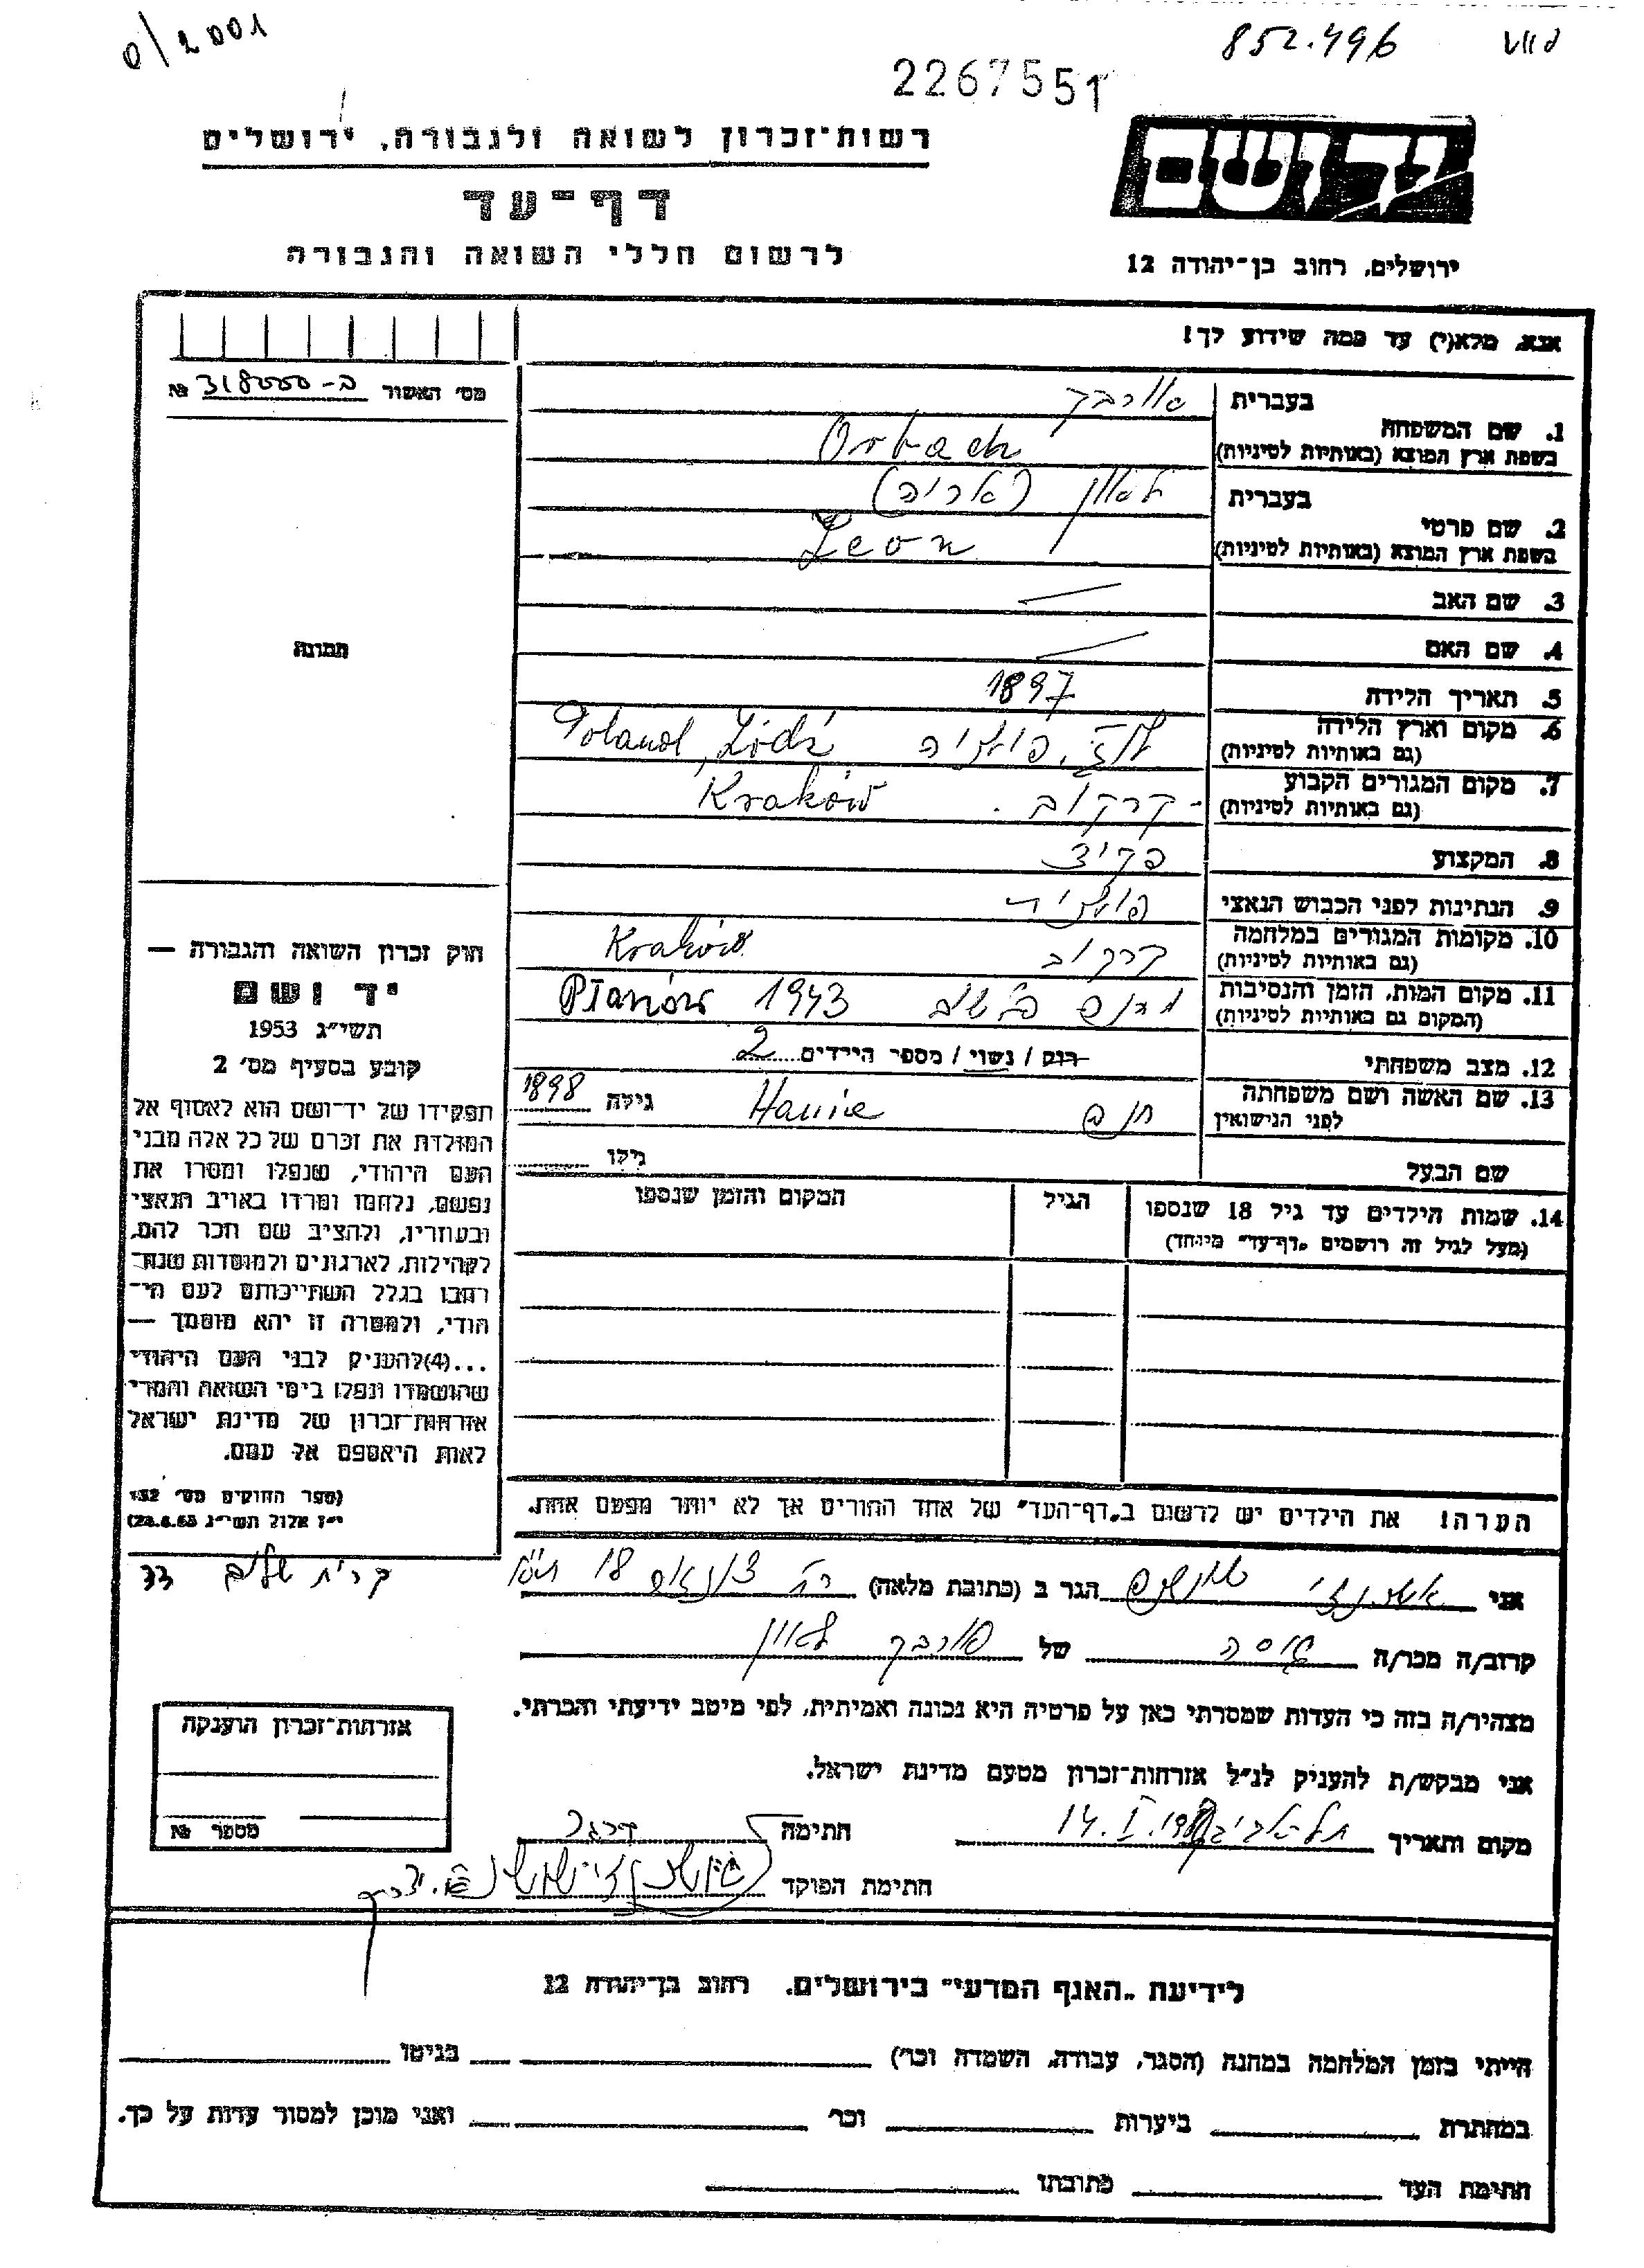 0/2001
852.496
2267551
רשות־זכרון לשואה ולגבורה, ירושלים
יד ושם
דף־עד
לרשום חללי השואה והגבורה
ירושלים, רחוב בן־יהודה 12
אנא, מלא(י) עד כמה שידוע לך!
מס׳ האשור ב-318000 №
1. שם המשפחה
בעברית אורבך
בשפת ארץ המוצא (באותיות לטיניות) Orbach
2. שם פרטי
בעברית לאון (אריה)
בשפת ארץ המוצא (באותיות לטיניות) Leon
3. שם האב —
4. שם האם —
תמונה
5. תאריך הלידה 1897
6. מקום וארץ הלידה לודז׳, פולניה Poland, Łódź
(גם באותיות לטיניות)
7. מקום המגורים הקבוע קרקוב Kraków
(גם באותיות לטיניות)
8. המקצוע פקיד
9. הנתינות לפני הכבוש הנאצי פולנית
10. מקומות המגורים במלחמה קרקוב Kraków
(גם באותיות לטיניות)
11. מקום המות, הזמן והנסיבות Płaszów 1943
(המקום גם באותיות לטיניות)
12. מצב משפחתי רווק / נשוי / מספר הילדים 2
13. שם האשה ושם משפחתה Hanna גילה 1898
לפני הנישואין
שם הבעל גילו
14. שמות הילדים עד גיל 18 שנספו הגיל המקום והזמן שנספו
(מעל לגיל זה רושמים „דף־עד״ מיוחד)
חוק זכרון השואה והגבורה —
יד ושם
תשי״ג 1953
קובע בסעיף מס׳ 2
תפקידו של יד־ושם הוא לאסוף אל
המולדת את זכרם של כל אלה מבני
העם היהודי, שנפלו ומסרו את
נפשם, נלחמו ומרדו באויב הנאצי
ובעוזריו, ולהציב שם וזכר להם,
לקהילות, לארגונים ולמוסדות שנח־
רבו בגלל השתייכותם לעם הי־
הודי, ולמטרה זו יהא מוסמך —
...(4)להעניק לבני העם היהודי
שהושמדו ונפלו בימי השואה והמרי
אזרחות־זכרון של מדינת ישראל
לאות היאספם אל עמם.
(ספר החוקים מס׳ 132
י״ז אלול תשי״ג 28.8.53)
הערה! את הילדים יש לרשום ב„דף־העד״ של אחד ההורים אך לא יותר מפעם אחת.
אני אשכנזי הגר ב (כתובת מלאה) רח׳ 18 קרית שלום 33
קרוב/ה מכר/ה גיסה של אורבך לאון
מצהיר/ה בזה כי העדות שמסרתי כאן על פרטיה היא נכונה ואמיתית, לפי מיטב ידיעתי והכרתי.
אני מבקש/ת להעניק לנ״ל אזרחות־זכרון מטעם מדינת ישראל.
אזרחות־זכרון הוענקה
מספר №
מקום ותאריך תל אביב 14.I. חתימה
חתימת הפוקד
לידיעת „האגף המדעי״ בירושלים. רחוב בן־יהודה 12
הייתי בזמן המלחמה במחנה (הסגר, עבודה, השמדה וכו׳) בגיטו
במחתרת ביערות וכו׳ ואני מוכן למסור עדות על כך.
חתימת העד כתובתו